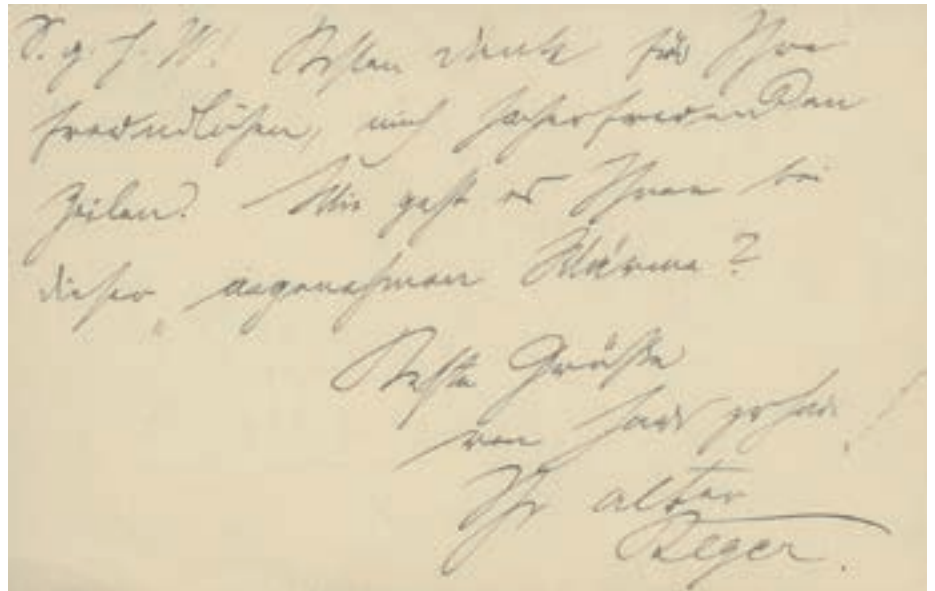 S. g. H. W! Besten Dank für Ihre
freundlichen, mich sehr erfreuenden
Zeilen! Wie geht es Ihnen bei
dieser „angenehmen Wärme?
Beste Grüße
von Haus zu Haus!
Ihr alter
Reger.